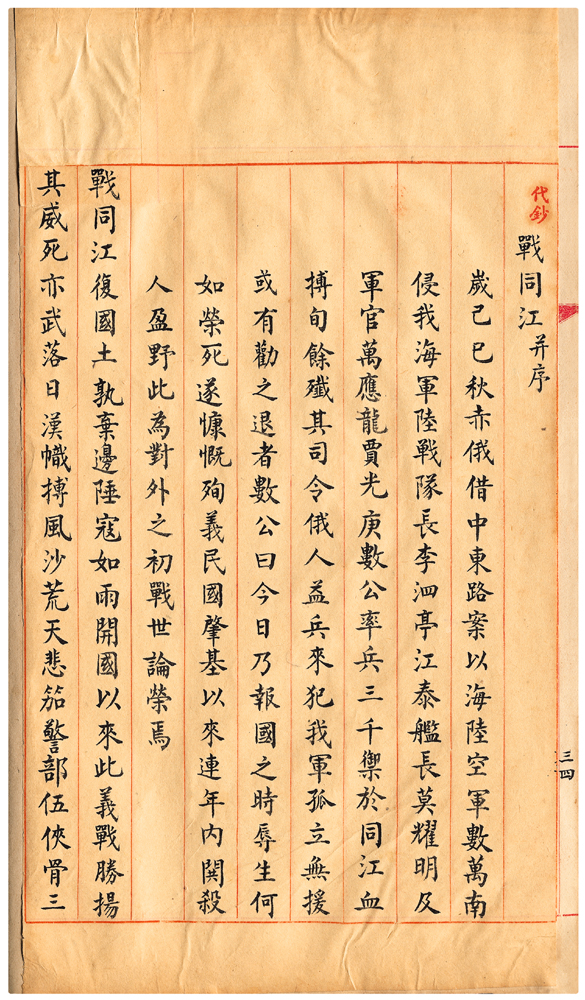 代鈔
戰同江并序
歲己巳秋赤俄借中東路案以海陸空軍數萬南
侵我海軍陸戰隊長李泗亭江泰艦長莫耀明及
軍官萬應龍賈光庚數公率兵三千禦於同江血
搏旬餘殲其司令俄人益兵來犯我軍孤立無援
或有勸之退者數公曰今日乃報國之時辱生何
如榮死遂慷慨殉義民國肇基以來連年內鬨殺
人盈野此為對外之初戰世論榮焉
戰同江復國土孰棄邊陲寇如雨開國以來此義戰勝揚
其威死亦武落日漢幟搏風沙荒天悲笳警部伍俠骨三
三四